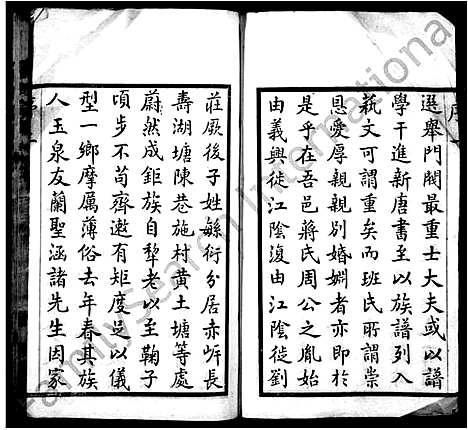 選舉門閥最重士大夫或以譜
學干進新唐書至以族譜列入
藝文可謂重矣而班氏所謂崇
恩愛厚親親別婚姻者亦即於
是乎在吾邑蔣氏周公之胤始
由義興徙江陰復由江陰徙劉
莊厥後子姓緜衍分居赤岍長
壽湖塘陳巷施村黄土塘等處
蔚然成鉅族自犂老以至鞠子
頃步不苟齊遬有矩度足以儀
型一鄉摩厲薄俗去年春其族
人玉泉友蘭聖涵諸先生因家
序
FamilySearch International